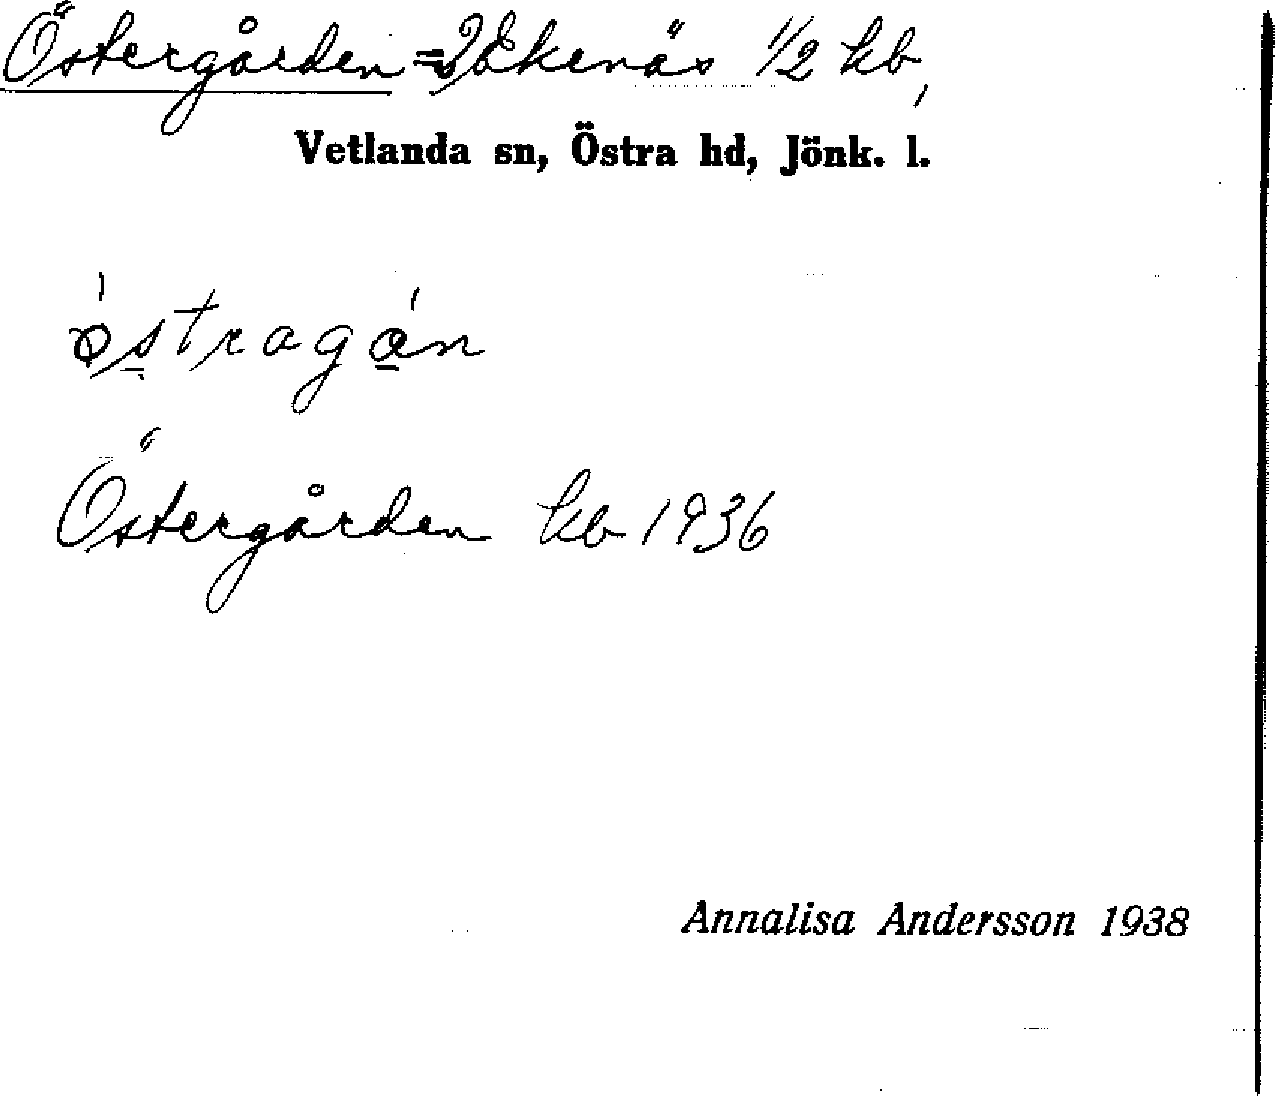 Östergården = Åkenäs 1/2 kb,
Vetlanda sn, Östra hd, Jönk. l.
östragán
Östergården kb 1936
Annalisa Andersson 1938